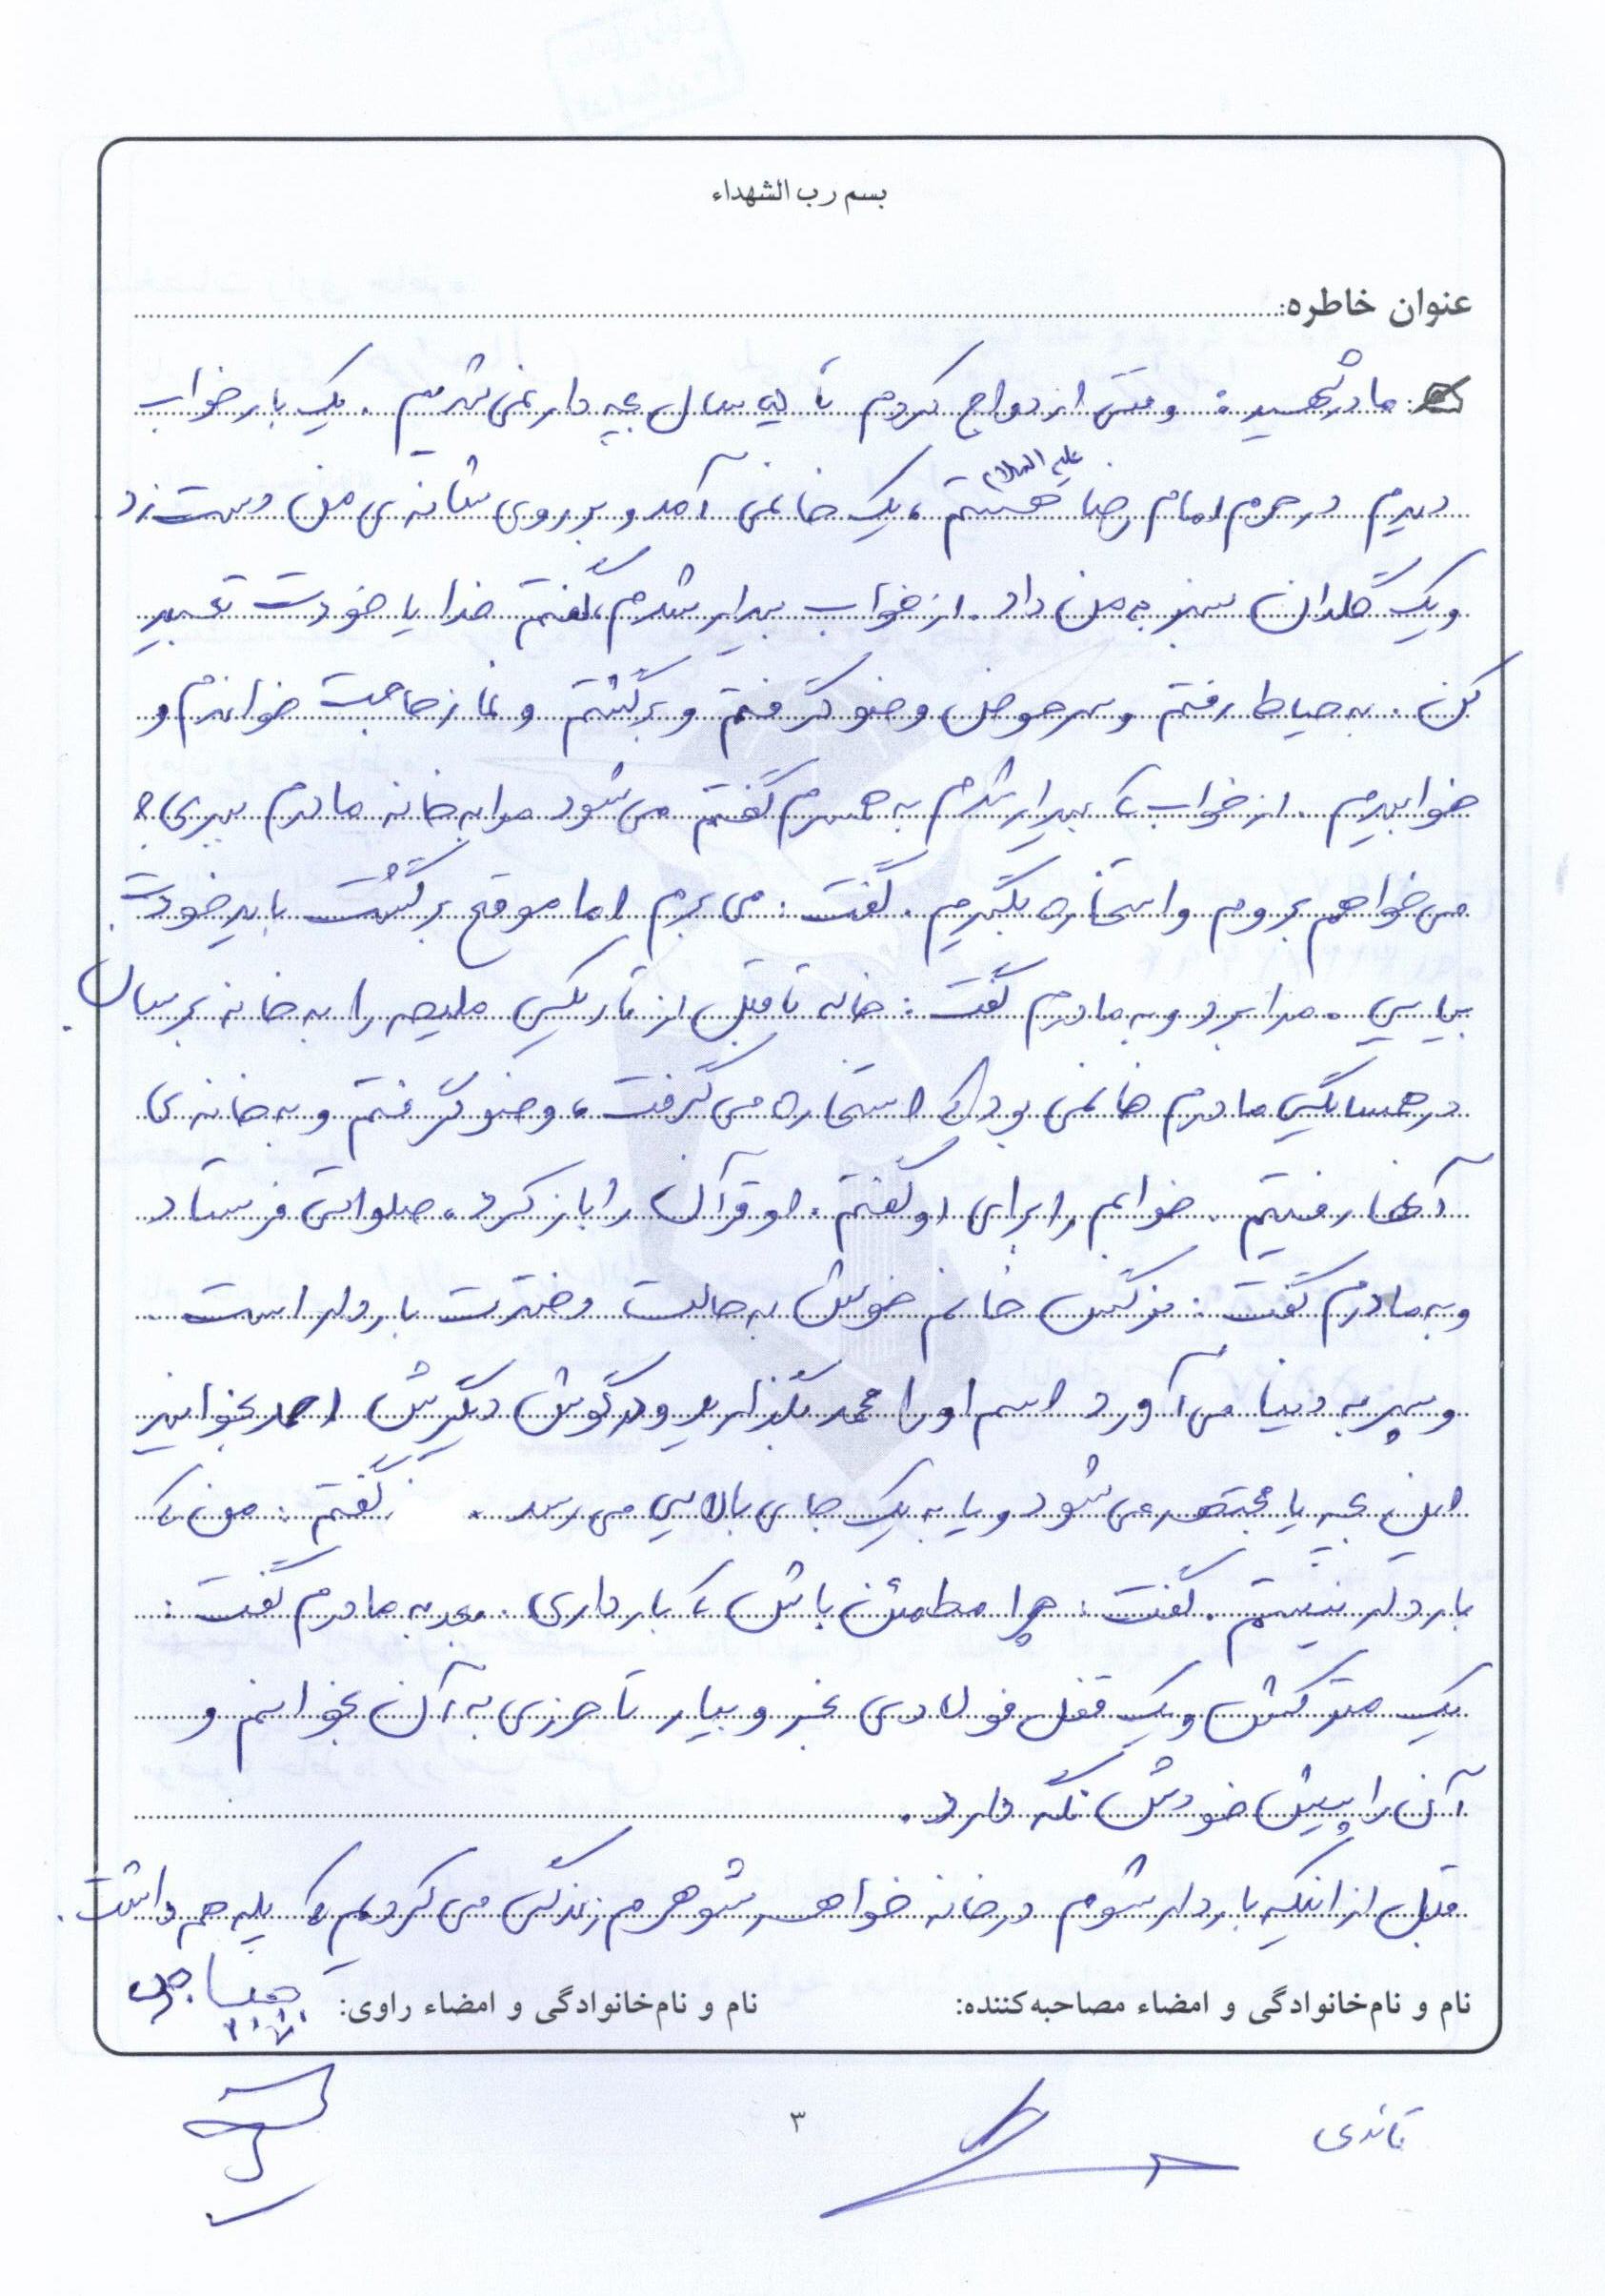 بسم رب الشهداء
عنوان خاطره:
مادر شهید: وقتی ازدواج کردم تا یه سال بچه دار نمی شدیم. یک بار خواب
دیدم در حرم امام رضا علیه السلام هستم، یک خانمی آمد و بر روی شانه ی من دست زد.
و یک گلدان سبز به من داد. از خواب بیدار شدم، گفتم خدایا خودت تعبیر
کن. به حیاط رفتم و سر حوض وضو گرفتم و برگشتم و نماز حاجت خواندم و
خوابیدم. از خواب که بیدار شدم به همسرم گفتم می شود مرا به خانه مادرم ببری؟
می خواهم بروم و استخاره بگیرم. گفت: می برم اما موقع برگشت باید خودت
بیایی. مرا برد و به مادرم گفت: خاله تا قبل از تاریکی ملیحه را به خانه برسان.
در همسایگی مادرم خانمی بود که استخاره می گرفت، وضو گرفتم و به خانه ی
آنها رفتیم. خوابم را برای او گفتم. او قرآن را باز کرد، صلواتی فرستاد
و به مادرم گفت: نرگس خانم خوش به حالت دخترت باردار است.
و پسر به دنیا می آورد اسم او را محمد بگذارید و در گوش دیگرش احمد بخوانید
این بچه یا مجتهد می شود و یا به یک جای بالایی می رسد. گفتم: من که
باردار نیستم. گفت: چرا مطمئن باش که بارداری. بعد به مادرم گفت:
یک متر کش و یک قفل فولادی بخر و بیار تا حرزی به آن بخوانم و
آن را پیش خودش نگه دارد.
قبل از اینکه باردار شوم در خانه خواهر شوهرم زندگی می کردیم که پله هم داشت.
نام و نام‌خانوادگی و امضاء مصاحبه‌کننده:
نام و نام‌خانوادگی و امضاء راوی:
قائدی
۳